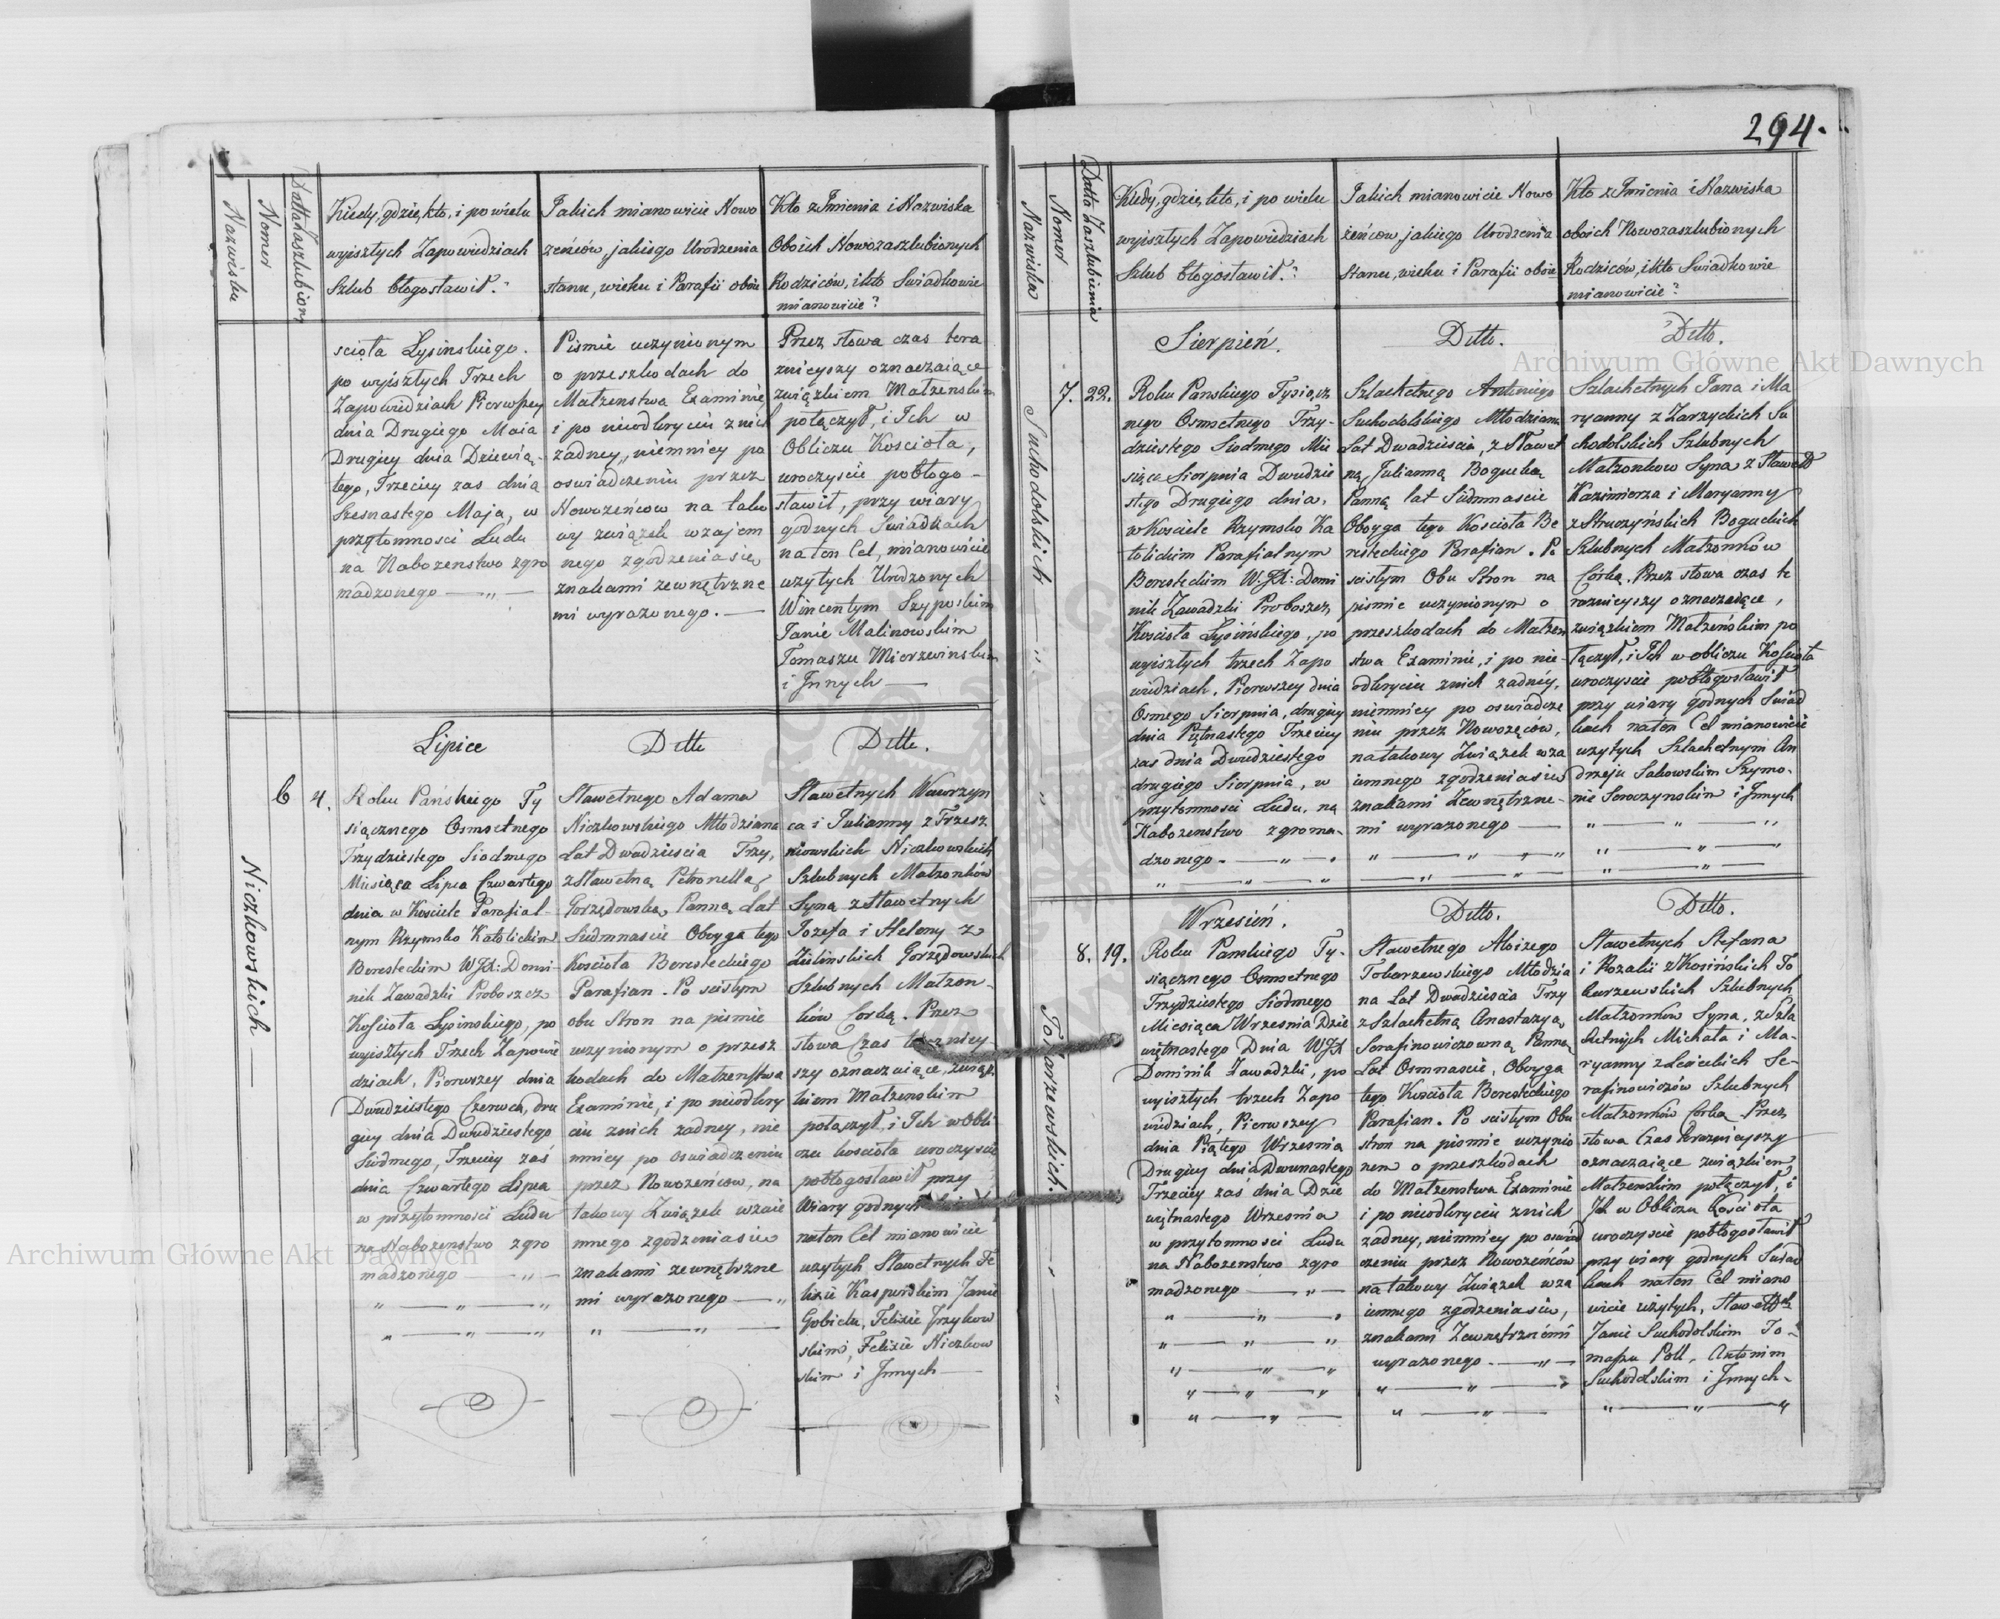 294.
Nazwisko
Nomer
Kiedy, gdzie, kto, i po wielu
wyiszłych Zapowiedziach
Szlub błogosławił?
Jakich mianowicie Nowo
żeńców, jakiego Urodzenia
stanu, wieku i Parafii oboie
Kto z Imienia i Nazwiska
Oboich Nowozaszlubionych
Rodziców, i kto Swiadkowie
mianowicie?
ścioła Łysinskiego.
po wyiszłych Trzech
Zapowiedziach Pierwszey
dnia Drugiego Maia
Drugiey dnia Dziewią-
tego, Trzeciey zas dnia
Szesnastego Maja, w
przytomności Ludu
na Nabozenstwo zgro
madzonego
Pismie uczynionym
o przeszkodach do
Małzenstwa Examinie
i po nieodkryciu znich
zadney, niemniey po
oswiadczeniu przez
Nowozeńcow na tako
wy związek wzajem
nego zgodzeniasie
znakami zewnętrzne
mi wyrazonego.
Przez słowa czas tera
znieyszy oznaczaiące
związkiem Małzenskim
połączył, i Ich w
Obliczu Koscioła,
uroczyscie pobłogo-
sławił, przy wiary
godnych Swiadkach
na ten Cel, mianowicie
uzytych Urodzonych
Wincentym Szyposkim
Janie Malinowskim
Tomaszu Mierzwinskim
i Innych
Lipiec
Ditto
Ditto.
6
4.
Niczkowskich
Roku Pańskiego Ty
siącznego Osmsetnego
Trzydziestego Siodmego
Miesiąca Lipca Czwartego
dnia w Kosciele Parafial-
nym Rzymsko Katolickim
Beresteckim WJX: Domi-
nik Zawadzki Proboszcz
Koscioła Łysinskiego, po
wyiszłych Trzech Zapowie
dziach, Pierwszey dnia
Dwudziestego Czerwca, dru
giey dnia Dwudziestego
Siodmego, Trzeciey zaś
dnia Czwartego Lipca
w przytomnosci Ludu
na Nabozenstwo zgro
madzonego
Sławetnego Adama
Niczkowskiego Młodziana
Lat Dwadziescia Trzy,
z Sławetną Petronellą
Gorzędowską Panną Lat
Siedmnascie Oboyga tego
Koscioła Beresteckiego
Parafian. Po scisłym
obu Stron na pismie
uczynionym o przesz
kodach do Małzenstwa
Examinie, i po nieodkry
ciu znich zadney, nie
mniey po oswiadczeniu
przez Nowozeńców, na
takowy Związek wzaie
mnego zgodzeniasie
znakami zewnętrzne
mi wyrazonego
Sławetnych Wawrzyn
ca i Julianny z Trzesz
niowskich Niczkowskich
Szlubnych Małzonków
Syna z Sławetnych
Jozefa i Heleny z
Zielinskich Gorzędowskich
Szlubnych Małzon-
ków Corką. Przez
słowa Czas terazniey-
szy oznaczaiące, związ
kiem Małzenskim
połączył, i Ich w Obli
czu koscioła uroczyscie
pobłogosławił przy
Wiary godnych
na ten Cel mianowicie
uzytych Sławetnych Fe
lixie Kasperskim Janie
Felixie
skim, Felixie Niczkow
skim i Innych
Nazwiska
Nomer
Datta Zaszlubienia
Kiedy, gdzie, kto, i po wielu
wyiszłych Zapowiedziach
Szlub błogosławił?
Jakich mianowicie Nowo
żeńców, jakiego Urodzenia
stanu, wieku i Parafii oboie
Kto z Imienia i Nazwiska
oboich Nowozaszlubionych
Rodziców, i kto Swiadkowie
mianowicie?
Sierpień.
Ditto.
Ditto.
7.
22.
Suchodolskich
Roku Panskiego Tysiącz
nego Osmsetnego Trzy-
dziestego Siodmego Mie
siąca Sierpnia Dwudzie
stego Drugiego dnia,
w Kosciele Rzymsko Ka
tolickim Parafialnym
Beresteckim WJX: Domi
nik Zawadzki Proboszcz
Koscioła Łysińskiego, po
wyiszłych trzech Zapo
wiedziach, Pierwszey dnia
Osmego Sierpnia, drugiey
dnia Piętnastego Trzeciey
zas dnia Dwudziestego
drugiego Sierpnia, w
przytomnosci Ludu, na
Nabozenstwo zgroma-
dzonego.
Szlachetnego Antoniego
Suchodolskiego Młodziana
Lat Dwadziescia, z Sławet
ną Julianną Bogucką
Panną lat Siedmnascie
Oboyga tego Koscioła Be
resteckiego Parafian. Po
scisłym Obu Stron na
pismie uczynionym o
przeszkodach do Małzen
stwa Examinie, i po nie-
odkryciu znich zadney,
niemniey po oswiadcze
niu przez Nowozeńców,
na takowy Związek wza
iemnego zgodzeniasie
znakami Zewnętrzne-
mi wyrazonego
Szlachetnych Jana i Ma
ryanny z Zarzyckich Su
chodolskich Szlubnych
Małzonkow Syna z Sławetn
Kazimierza i Maryanny
z Struczyńskich Boguckich
Szlubnych Małzonków
Córką. Przez słowa czas te
raznieyszy oznaczaiące,
związkiem Małzeńskim po
łączył, i Ich w obliczu Koscioła
uroczyscie pobłogosławił
przy wiary godnych Swiad
kach na ten Cel mianowicie
uzytych Szlachetnym An
drzeju Sakowskim Szymo-
nie Soroczynskim i Innych
Wrzesień.
Ditto.
Ditto.
8.
19.
Tokarzewskich
Roku Panskiego Ty-
siącznego Osmsetnego
Trzydziestego Siodmego
Miesiąca Wrzesnia Dzie
więtnastego Dnia WJX
Dominik Zawadzki, po
wyiszłych trzech Zapo
wiedziach, Pierwszey
dnia Piątego Wrzesnia
Drugiey dnia Dwunastego
Trzeciey zaś dnia Dzie
więtnastego Wrzesnia
w przytomnosci Ludu
na Nabozenstwo zgro
madzonego
Sławetnego Aloizego
Tokarzewskiego Młodzia
na Lat Dwadziescia Trzy
z Szlachetną Anastazyą
Serafinowiczowną Panną
Lat Osmnascie, Oboyga
tego Koscioła Beresteckiego
Parafian. Po scisłym Obu
stron na pismie uczynio
nem o przeszkodach
do Małzenstwa Examinie
i po nieodkryciu znich
zadney, niemniey po oswiad
czeniu przez Nowozeńców
na takowy Związek wza
iemnego zgodzeniasie,
znakami Zewnętrznémi
wyrazonego.
Sławetnych Stefana
i Rozalii z Kosińskich To
karzewskich Szlubnych
Małzonków Syna, z Szla
chetnych Michała i Ma-
ryanny z Se-
rafinowiczów Szlubnych
Małzonków Corką. Przez
słowa Czas teraznieyszy
oznaczaiące związkiem
Małzenskim połączył, i
Ich w Obliczu Koscioła
uroczyscie pobłogosławił
przy wiary godnych Swiad
kach na ten Cel miano
wicie użytych, Sławetnych
Janie Suchodolskim To-
maszu Poll, Antonim
Suchodolskim i Innych
Archiwum Główne Akt Dawnych
Archiwum Główne Akt Dawnych